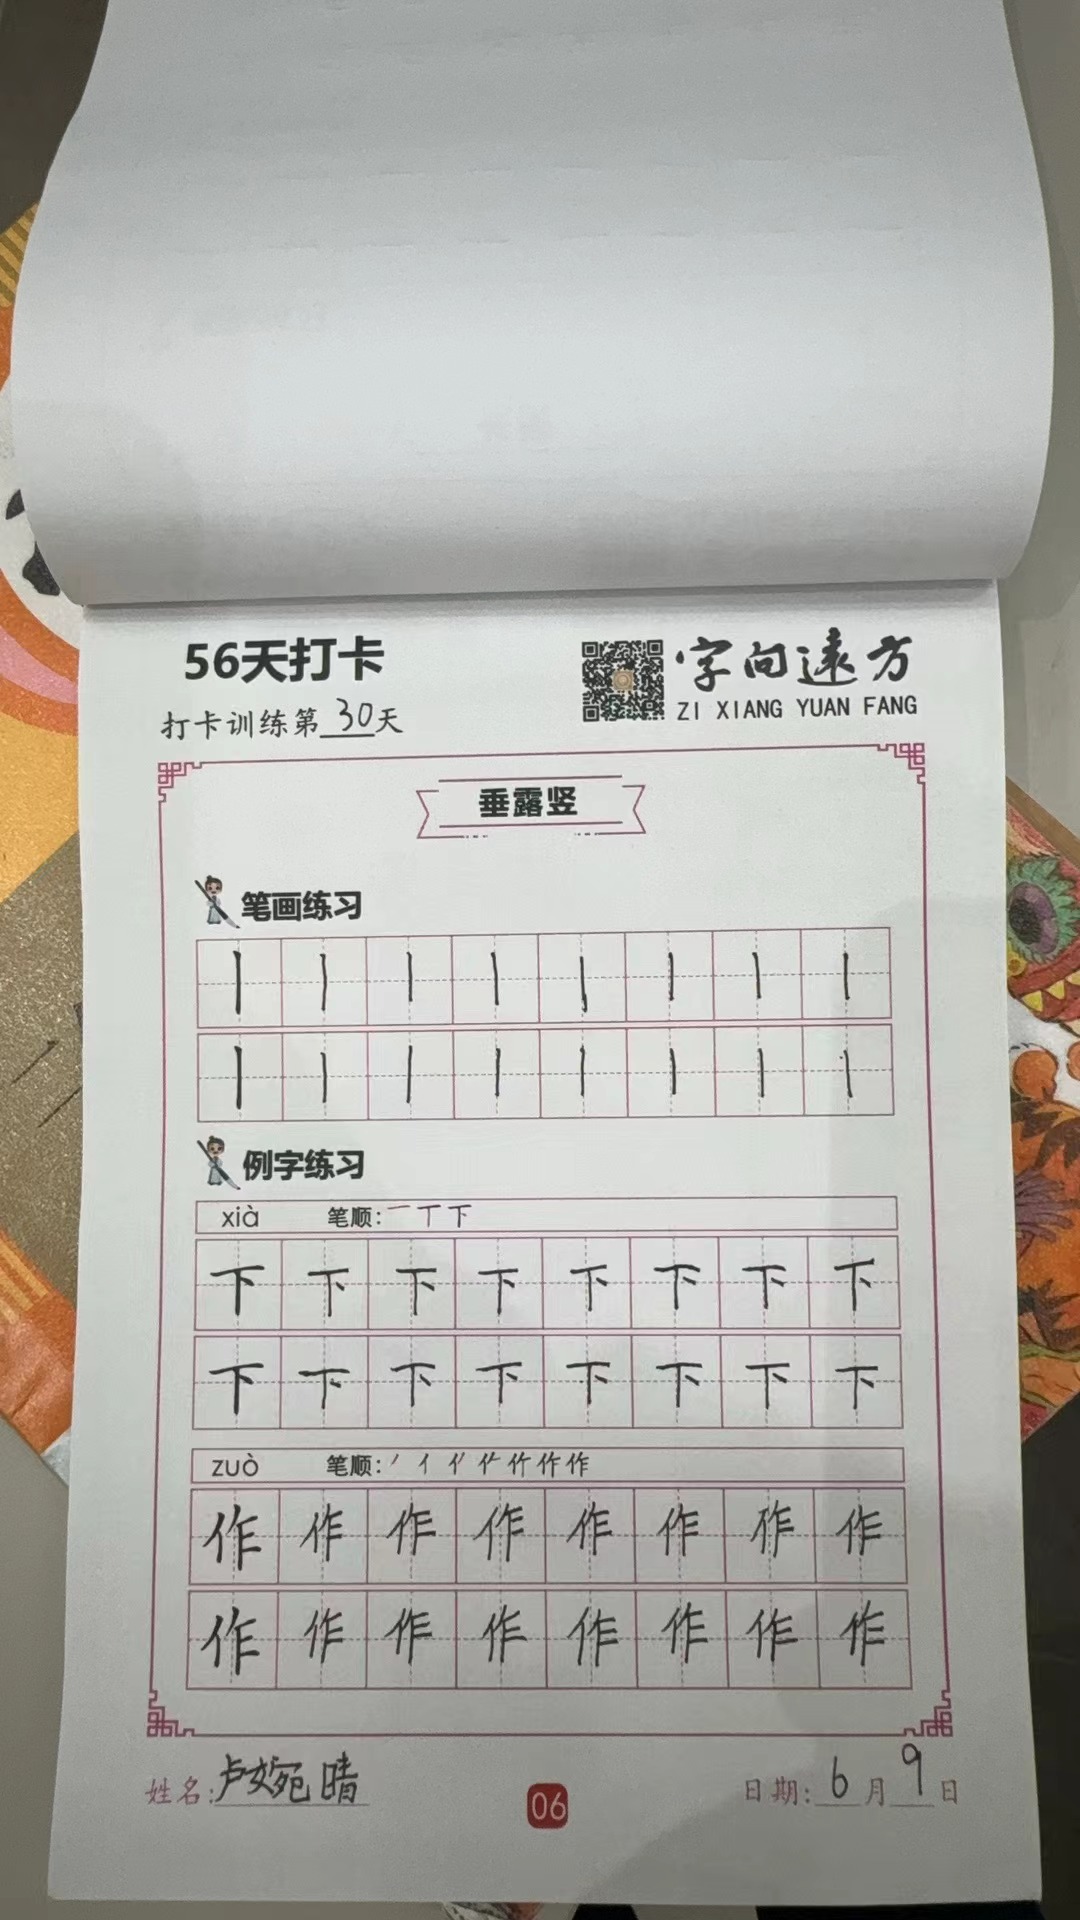 56天打卡
字向遠方
ZI XIANG YUAN FANG
打卡训练第30天
垂露竖
笔画练习
丨丨丨丨丨丨丨丨
丨丨丨丨丨丨丨丨
例字练习
xià 笔顺:一丅下
下下下下下下下下
下下下下下下下下
zuò 笔顺:丿亻作
作作作作作作作作
作作作作作作作作
姓名:卢婉晴
06
日期:6月9日